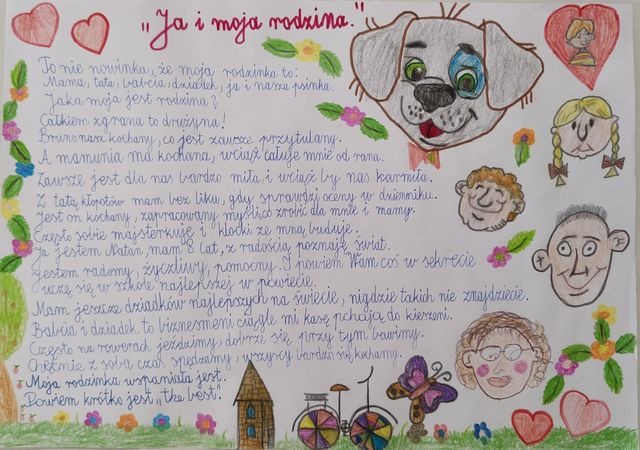 „Ja i moja rodzina."
To nie nowinka, że moja rodzinka to:
Mama, tata, babcia, dziadek, ja i nasza psinka.
Jaka moja jest rodzina?
Całkiem zgrana to drużyna!
Bruno nasz kochany, co jest zawsze przytulany.
A mamunia ma kochana, wciąż całuje mnie od rana.
Zawsze jest dla nas bardzo miła i wciąż by nas karmiła.
Z tatą kłopotów mam bez liku, gdy sprawdzi oceny w dzienniku.
Jest on kochany, zapracowany, myśli co zrobić dla mnie i mamy.
Często sobie majsterkuje i klocki ze mną buduje.
Ja jestem Natan, mam 8 lat, z radością poznaję świat.
Jestem radosny, życzliwy, pomocny. I powiem Wam coś w sekrecie
uczę się w szkole najlepszej w powiecie.
Mam jeszcze dziadków najlepszych na świecie, nigdzie takich nie znajdziecie.
Babcia i dziadek to biznesmeni ciągle mi kasę pchają do kieszeni.
Często na rowerach jeździmy, dobrze się przy tym bawimy.
Chętnie z sobą czas spędzamy i wszyscy bardzo się kochamy.
Moja rodzinka wspaniała jest.
Powiem krótko jest „the best".